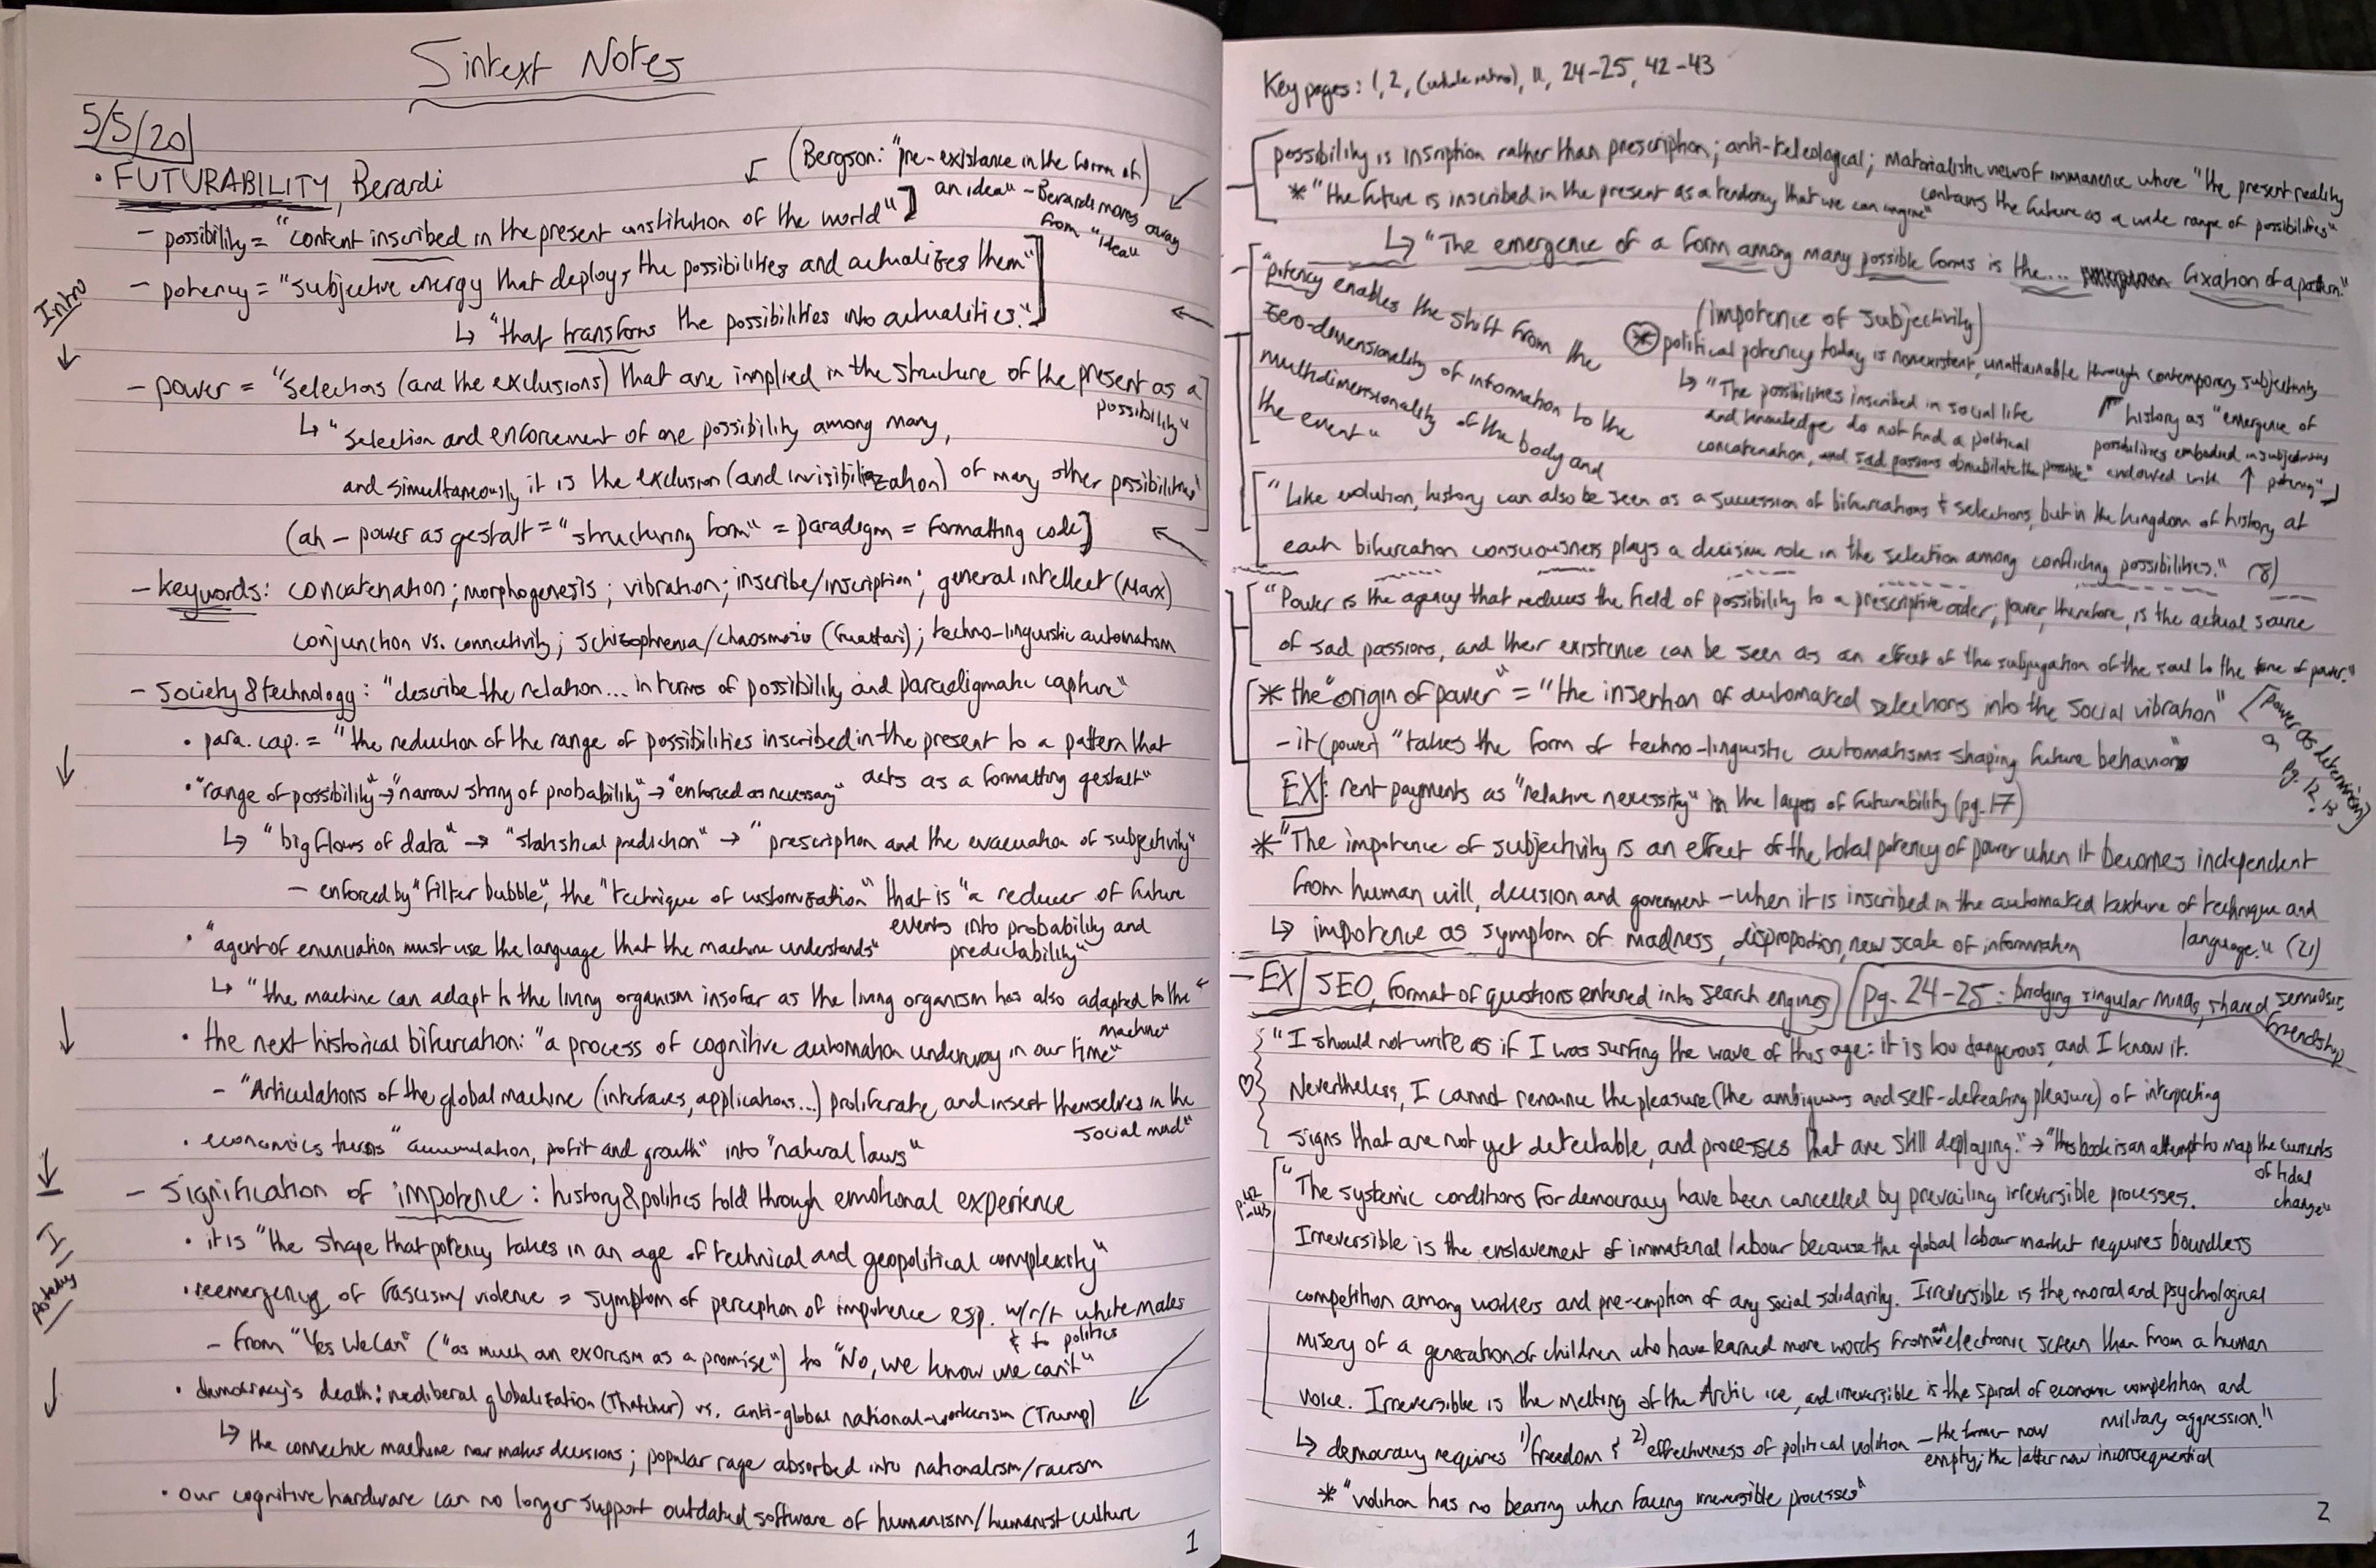 Sintext Notes
5/5/20
• FUTURABILITY, Berardi
(Bergson: "pre-existance in the form of
an idea" - Berardi moves away
from "idea"
- possibility = "content inscribed in the present constitution of the world"]
- potency = "subjective energy that deploys the possibilities and actualizes them"
↳ "that transforms the possibilities into actualities."
Intro
- power = "selections (and the exclusions) that are implied in the structure of the present as a
possibility"
↳ "selection and enforcement of one possibility among many,
and simultaneously it is the exclusion (and invisibilization) of many other possibilities"
(ah - power as gestalt = "structuring form" = paradigm = formatting code]
- keywords: concatenation; morphogenesis; vibration; inscribe/inscription; general intellect (Marx)
conjunction vs. connectivity; schizophrenia/chaosmosis (Guattari); techno-linguistic automatism
- Society & technology: "describe the relation... in terms of possibility and paradigmatic capture"
• para. cap. = "the reduction of the range of possibilities inscribed in the present to a pattern that
acts as a formatting gestalt"
• "range of possibility" → "narrow string of probability" → "enforced as necessary"
↳ "big flows of data" → "statistical prediction" → "prescription and the evacuation of subjectivity"
- enforced by "filter bubble", the "technique of customization" that is "a reducer of future
events into probability and
predictability"
• "agent of enunciation must use the language that the machine understands"
↳ "the machine can adapt to the living organism insofar as the living organism has also adapted to the
machine"
• the next historical bifurcation: "a process of cognitive automation underway in our time"
- "Articulations of the global machine (interfaces, applications...) proliferate and insert themselves in the
social mind"
• economics turns "accumulation, profit and growth" into "natural laws"
- Signification of impotence: history & politics told through emotional experience
I
Potency
• it is "the shape that potency takes in an age of technical and geopolitical complexity"
• reemergence of fascism/violence = symptom of perception of impotence esp. w/r/t white males
& to politics
- from "Yes We Can" ("as much an exorcism as a promise") to "No, we know we can't"
• democracy's death: neoliberal globalization (Thatcher) vs. anti-global national-workerism (Trump)
↳ the connective machine now makes decisions; popular rage absorbed into nationalism/racism
• our cognitive hardware can no longer support outdated software of humanism/humanist culture
1
Key pages: 1, 2, (whole intro), 11, 24-25, 42-43
possibility is insription rather than prescription; anti-teleological; materialistic view of immanence where "the present reality
contains the future as a wide range of possibilities"
* "the future is inscribed in the present as a tendency that we can imagine"
↳ "The emergence of a form among many possible forms is the... fixation of a pattern."
"potency enables the shift from the
zero-dimensionality of information to the
multidimensionality of the body and
the event"
(impotence of subjectivity)
* political potency today is nonexistent, unattainable through contemporary subjectivity
↳ "The possibilities inscribed in social life
and knowledge do not find a political
concatenation, and sad passions obnubilate the possible."
history as "emergence of
possibilities embodied in subjectivities
endowed with ↑ potency"]
"Like evolution, history can also be seen as a succession of bifurcations & selections, but in the kingdom of history at
each bifurcation consciousness plays a decisive role in the selection among conflicting possibilities." (8)
"Power is the agency that reduces the field of possibility to a prescriptive order; power, therefore, is the actual source
of sad passions, and their existence can be seen as an effect of the subjugation of the soul to the force of power."
* the "origin of power" = "the insertion of automated selections into the social vibration"
[power as determinism
on pg. 12, 13]
- it (power) "takes the form of techno-linguistic automatisms shaping future behavior"
EX: rent payments as "relative necessity" in the layers of futurability (pg. 17)
* "The impotence of subjectivity is an effect of the total potency of power when it becomes independent
from human will, decision and goverment - when it is inscribed in the automated texture of technique and
language." (21)
↳ impotence as symptom of madness, disproportion, new scale of information
- EX/ SEO, format of questions entered into search engines
pg. 24-25: bridging singular minds, shared semiosis,
friendship
"I should not write as if I was surfing the wave of this age: it is too dangerous, and I know it.
♡ Nevertheless, I cannot renounce the pleasure (the ambiguous and self-defeating pleasure) of interpreting
signs that are not yet detectable, and processes that are still deploying." → "this book is an attempt to map the currents
of tidal
change"
p. 42
-43
"The systemic conditions for democracy have been cancelled by prevailing irreversible processes.
Irreversible is the enslavement of immaterial labour because the global labour market requires boundless
competition among workers and pre-emption of any social solidarity. Irreversible is the moral and psychological
misery of a generation of children who have learned more words from an electronic screen than from a human
voice. Irreversible is the melting of the Arctic ice, and irreversible is the spiral of economic competition and
military aggression."
↳ democracy requires 1) freedom & 2) effectiveness of political volition - the former now
empty; the latter now inconsequential
* "volition has no bearing when facing irreversible processes"
2